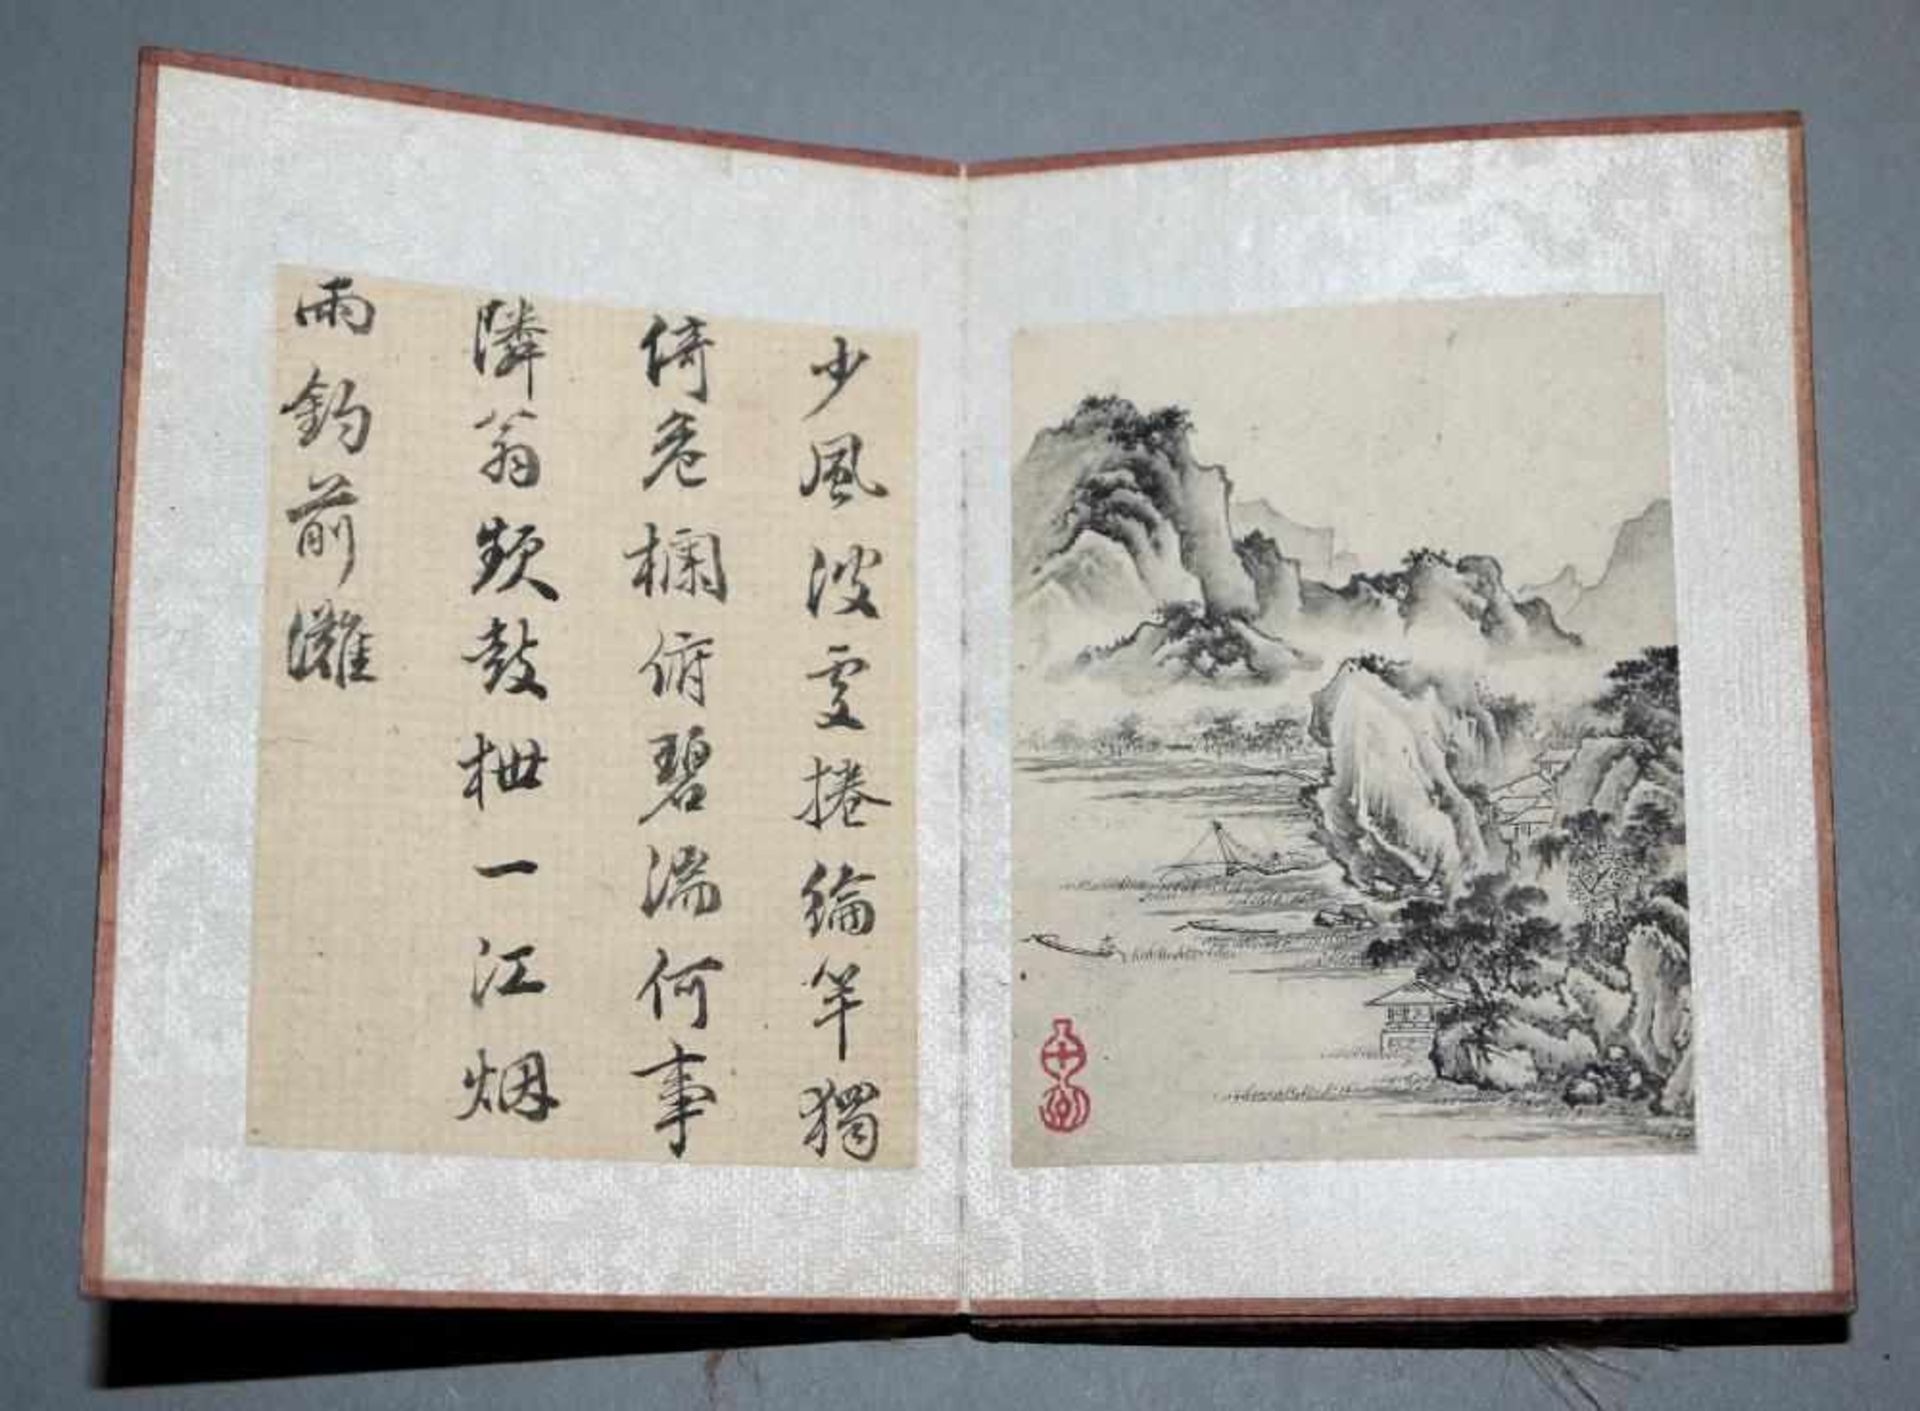 少風波處捲綸竿獨
倚危欄俯碧湍何事
隣翁頻鼓枻一江烟
雨釣前灘